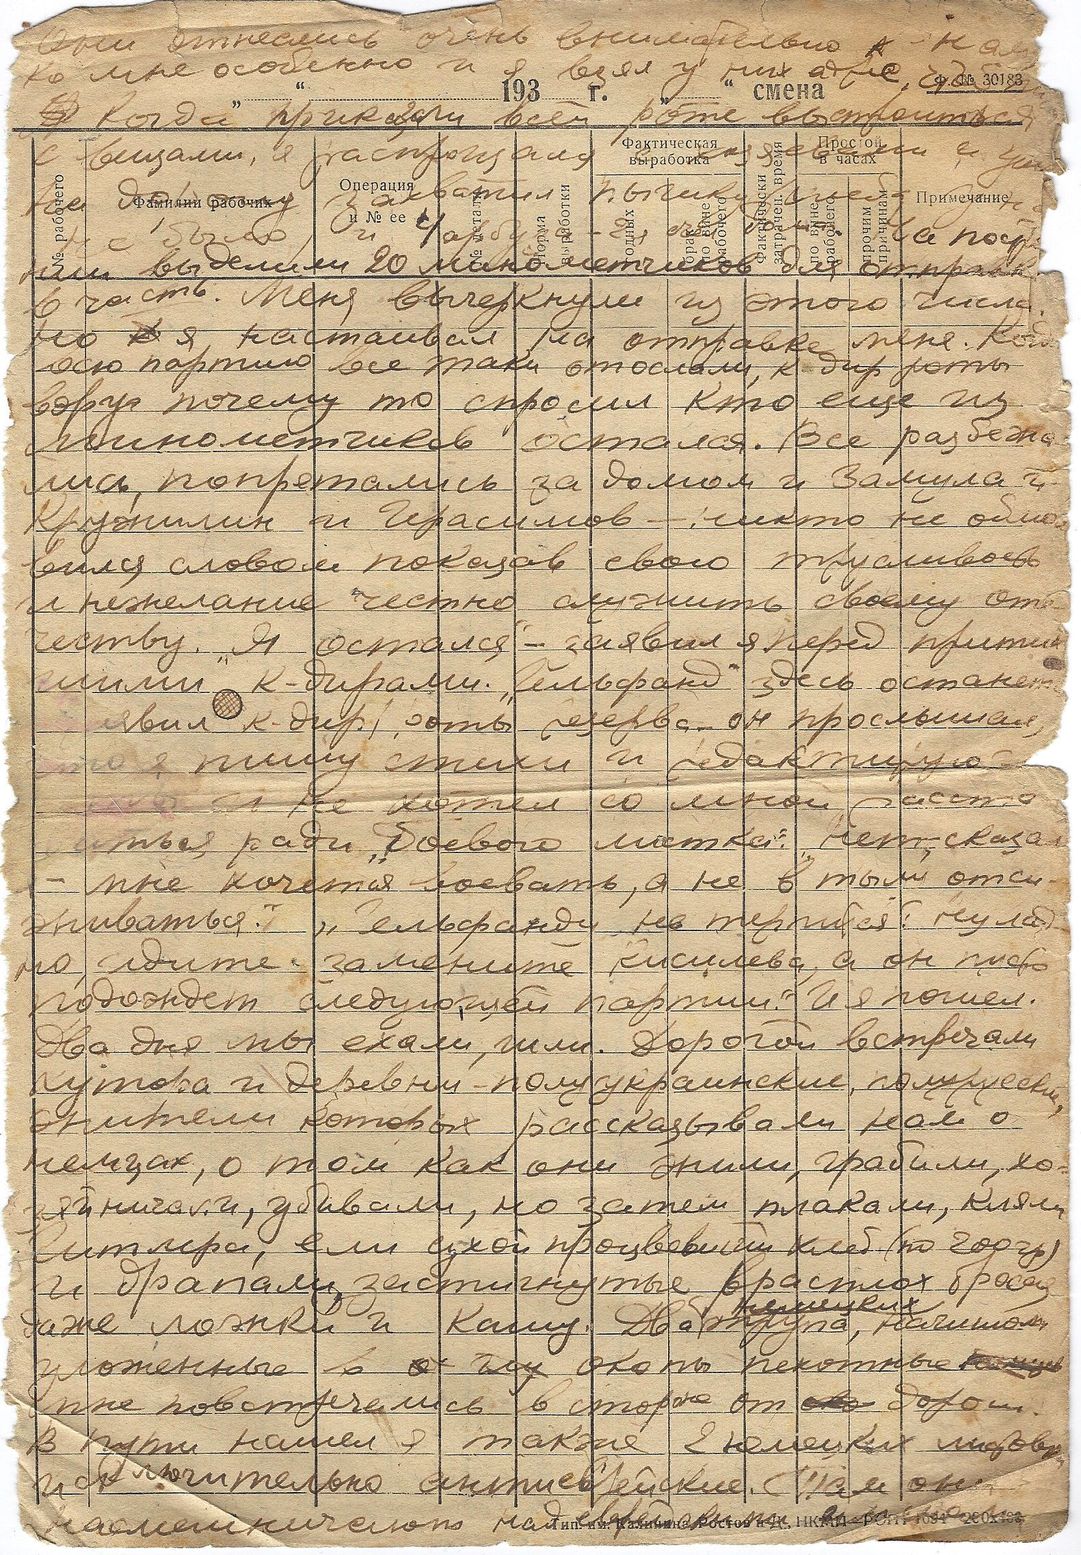 Они отнеслись очень внимательно к нам
ко мне особенно и я взял у них адрес
Ф. № 30183
" " 193 г. " " смена
Когда приказали всей роте выстроиться
с вещами, я распрощался
захватил пышку
№ рабочего
Фамилия рабочих
Операция и № ее
№ детали
Норма выработки
Фактическая выработка
годных
брак по вине рабочего
Фактически затрачен. время
Простой в часах
по вине рабочего
прочим причинам
Примечание
было и 4 арбуза
выделили 20 минометчиков для отправки
в часть. Меня вычеркнули из этого числа,
но я настаивал на отправке меня. Когда
всю партию все таки отослали, к-дир роты
вдруг почему то спросил кто еще из
минометчиков остался. Все разбежа
лись, попрятались за домом и Замула и
Кружилин и Герасимов – никто не обмол
вился словом показав свою трусливость
и нежелание честно служить своему оте
честву. "Я остался" – заявил я перед притих
шими к-дирами. "Гельфанд здесь останет
явил к-дир роты резерва – он прослышал,
что я пишу стихи и редактирую
и не хотел со мной расста
ться ради "Боевого листка". "Нет, сказал
– мне хочется воевать, а не в тылу отси-
живаться." "Гельфанду не терпится! Ну лад
но, идите – замените Кисилева, а он пусть
подождет следующей партии." И я пошел.
Два дня мы ехали, шли. Дорогой встречали
хутора и деревни – полуукраинские, полурусские,
жители которых рассказывали нам о
немцах, о том как они жили, грабили, хо-
зяйничали, убивали, но затем плакали, кляли
Гитлера, ели сухой процвевший хлеб
и драпали, застигнутые врасплох бросая
даже ложки и кашу. Два трупа немецких,
уложенные в окопы пехотные
мне повстречались в стороне от дороги.
В пути нашел я также 2 немецких листовки
исключительно антиеврейские. Там они
насмешничают над евреями
Тип. им. Калинина, Ростов н-Д., НКМП – РСП 1684 – 200х138